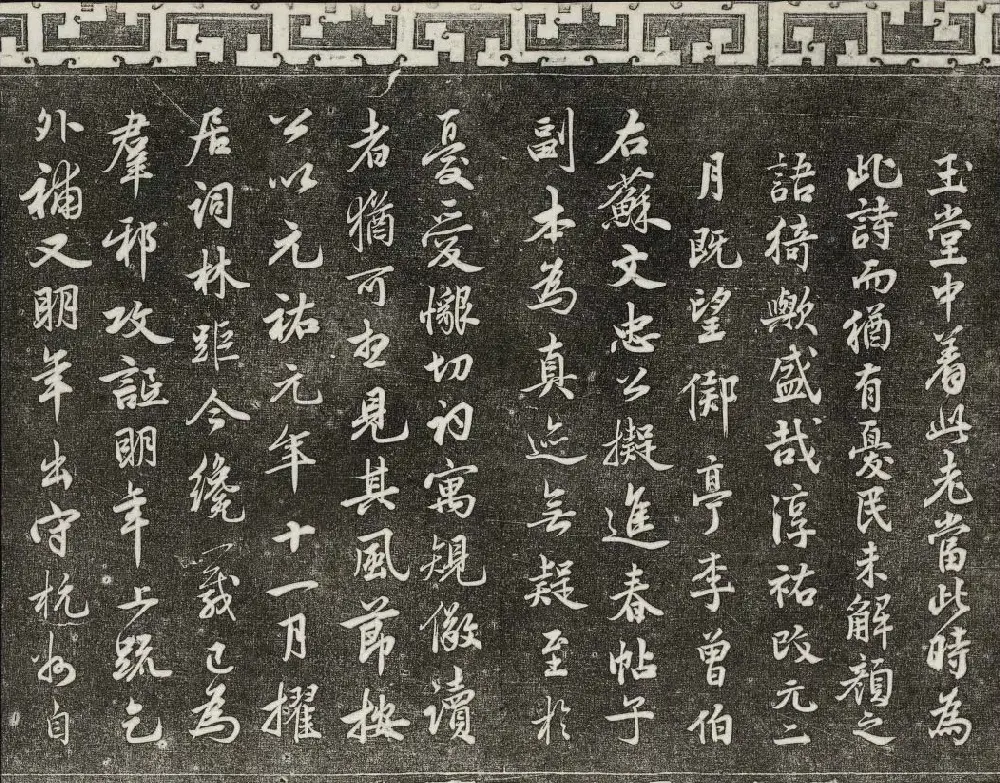 玉堂中着此老當此時為
此詩而猶有憂民未解顔之
語猗歟盛哉淳祐改元二
月既望㢚亭李曾伯
右蘇文忠公擬進春帖子
副本為真迹無疑至於
憂愛懇切初寓規儆讀
者猶可想見其風節按
公以元祐元年十一月擢
居詞林距今纔一箴已為
羣邪攻詆明年上疏乞
外補又明年出守杭州自